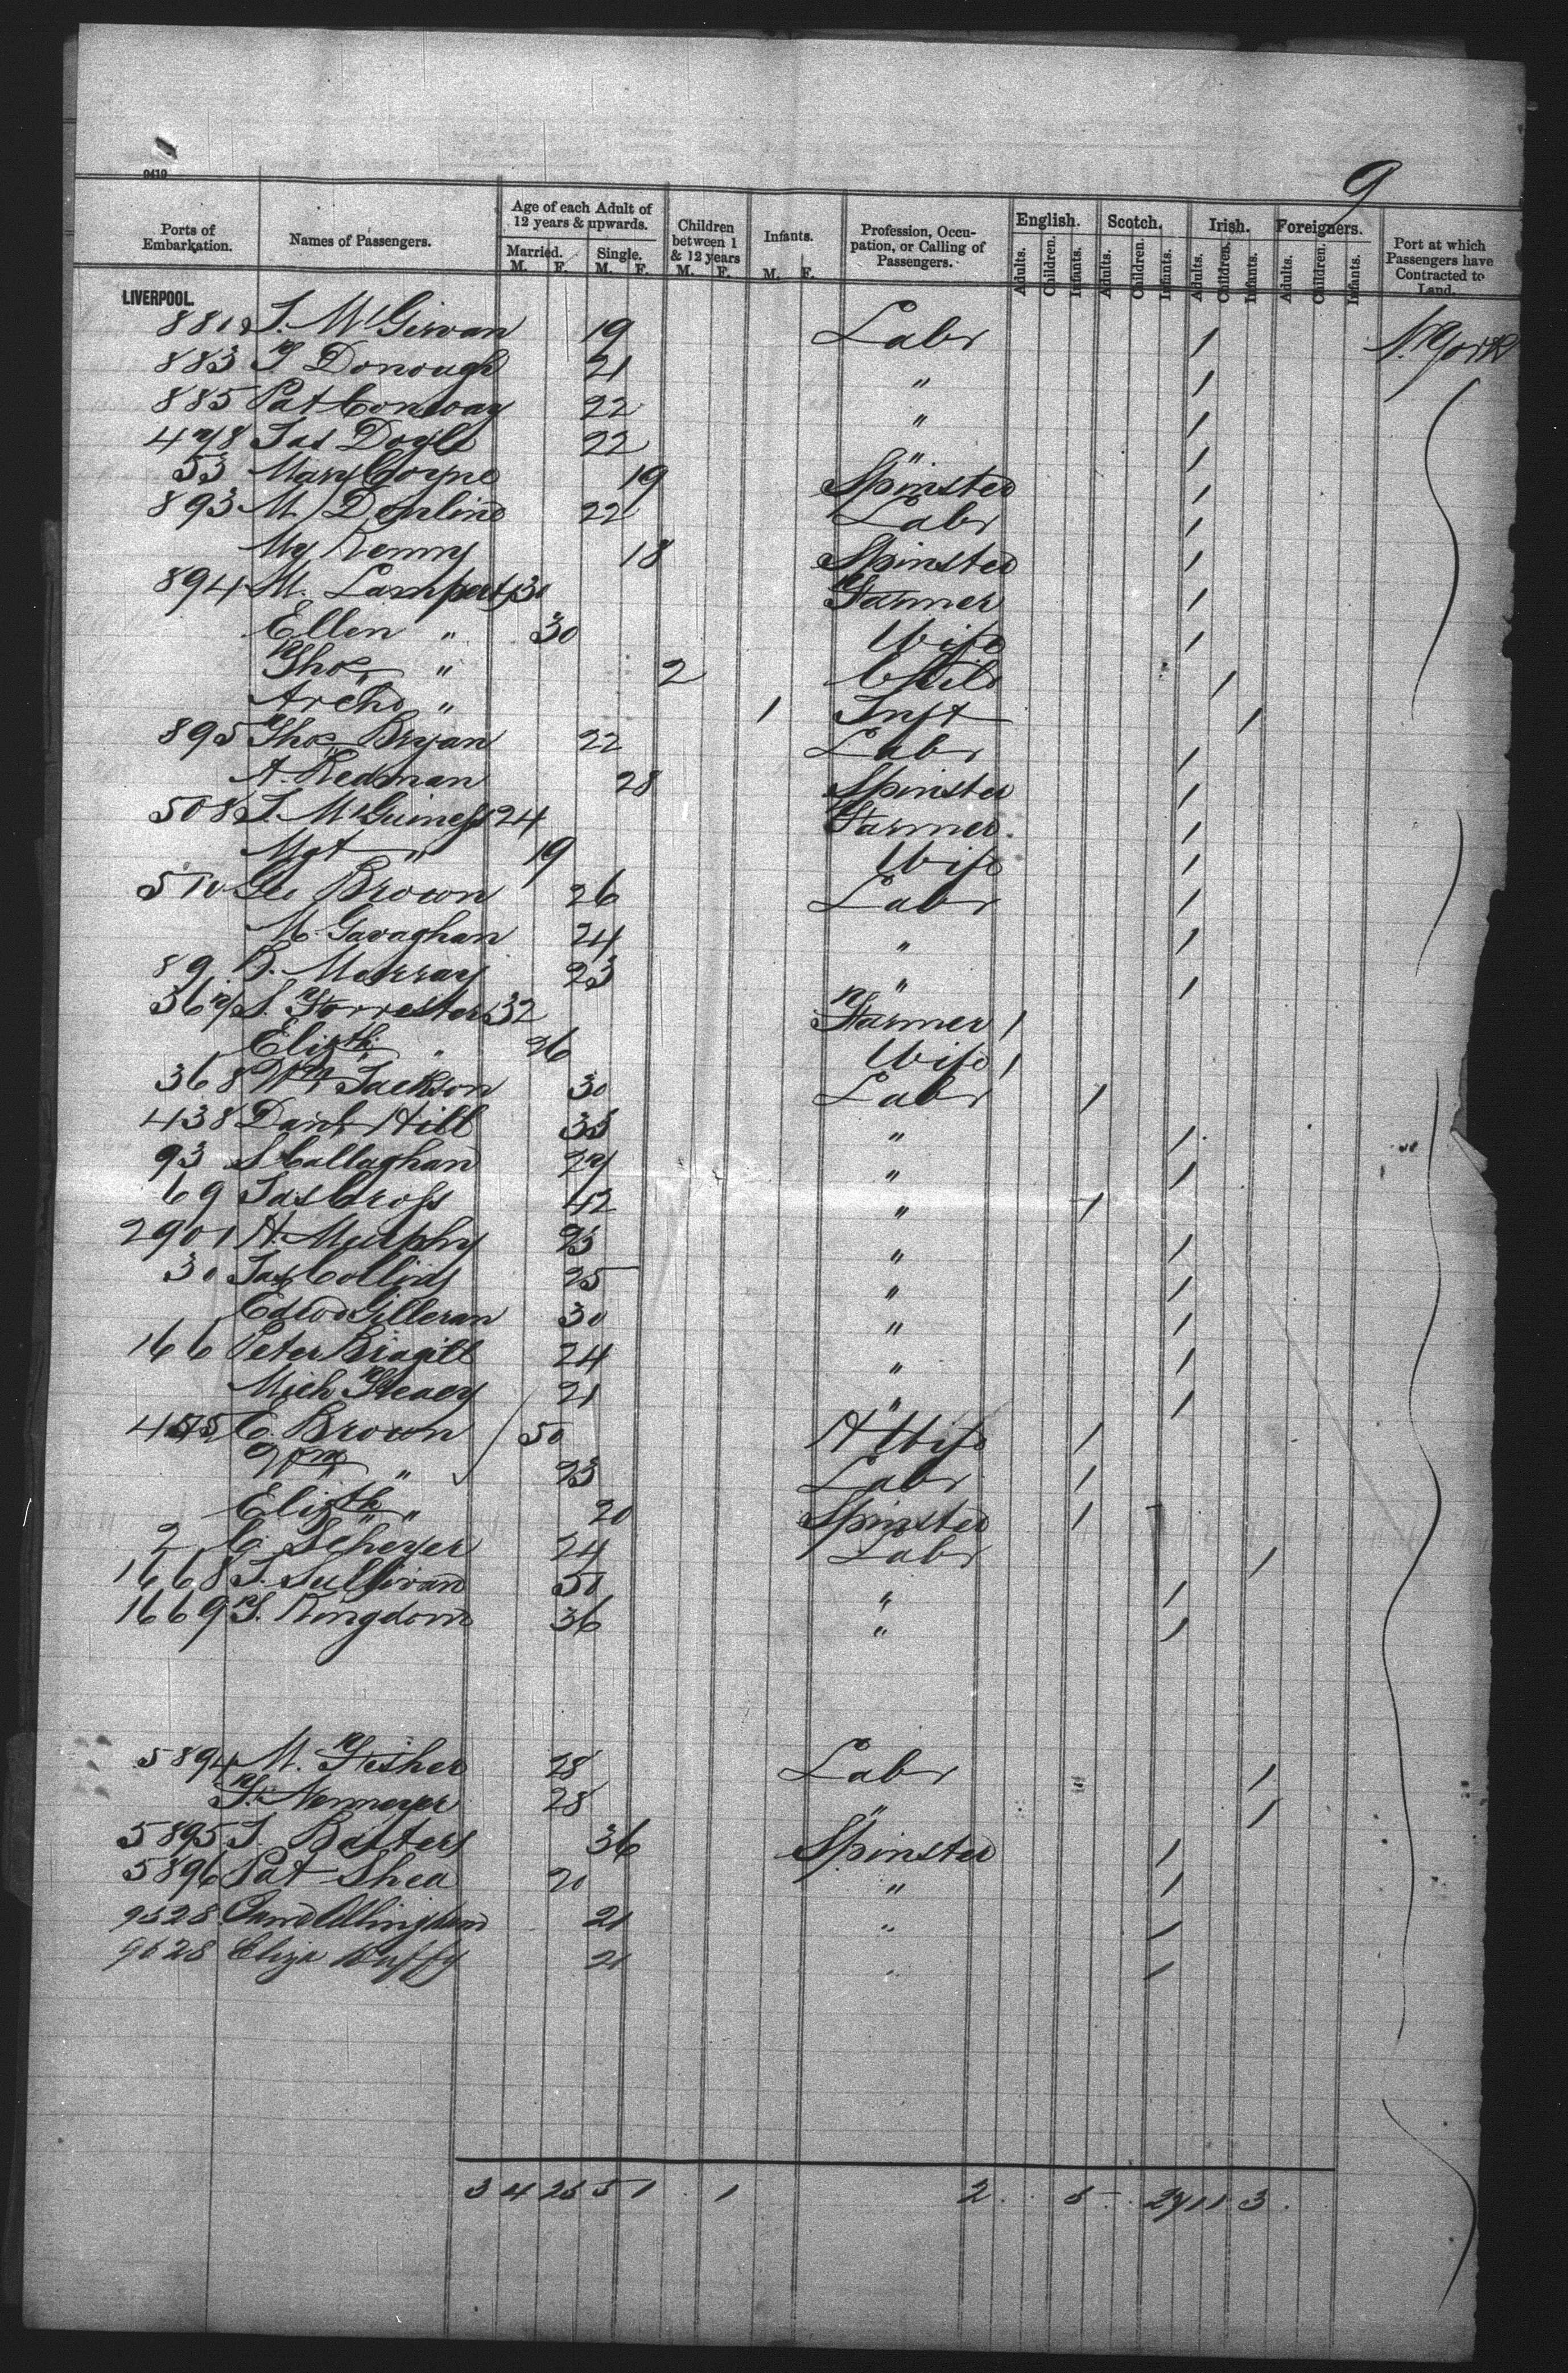 9
9419
Ports of Embarkation. Names of Passengers. Age of each Adult of 12 years & upwards. Married. M. F. Single. M. F. Children between 1 & 12 years M. F. Infants. M. F. Profession, Occupation, or Calling of Passengers. English. Adults. Children. Infants. Scotch. Adults. Children. Infants. Irish. Adults. Children. Infants. Foreigners. Adults. Children. Infants. Port at which Passengers have Contracted to Land.
LIVERPOOL.
881 J. McGirvan 19 Labr 1 N. York
883 T Donough 21 " 1
885 Pat Conway 22 " 1
478 Jas Doyle 22 " 1
53 Mary Coyne 19 Spinster 1
893 M. Donlind 22 Labr 1
My Kenny 18 Spinster 1
894 M. Lampert 30 Farmer 1
Ellen " 30 Wife 1
Thos " 2 Child 1
Archd " 1 Inft 1
895 Thos Bryan 22 Labr 1
A. Redman 28 Spinster 1
508 J. McGuiness 24 Farmer 1
Mgt " 19 Wife 1
510 Geo Brown 26 Labr 1
M Gavaghan 24 " 1
89 B. Murray 23 " 1
367 S. Forrester 32 Farmer 1
Elizth " 26 Wife 1
368 Wm Jackson 30 Labr 1
438 Danl Hill 35 " 1
93 S Callaghan 27 " 1
69 Jas Cross 42 " 1
2901 H. Murphy 23 " 1
30 Jas Collins 25 " 1
Edwd Gilleran 30 " 1
166 Peter Bragill 24 " 1
Mich Heavy 21 " 1
C. Brown 50 H Wife 1
Wm " 23 Labr 1
Elizth " 20 Spinster 1
2 C. Scherer 24 Labr 1
1668 J. Sullivan 50 " 1
1669 T. Kingdom 36 " 1
5894 M. Fisher 28 Labr 1
F. Nemeyer 28 " 1
5895 J. Balters 36 Spinster 1
5896 Pat Shea 20 " 1
9528 Allingham 21 " 1
9628 Eliza Duffy 21 " 1
3 4 25 5 1 1 2 5 27 1 1 3